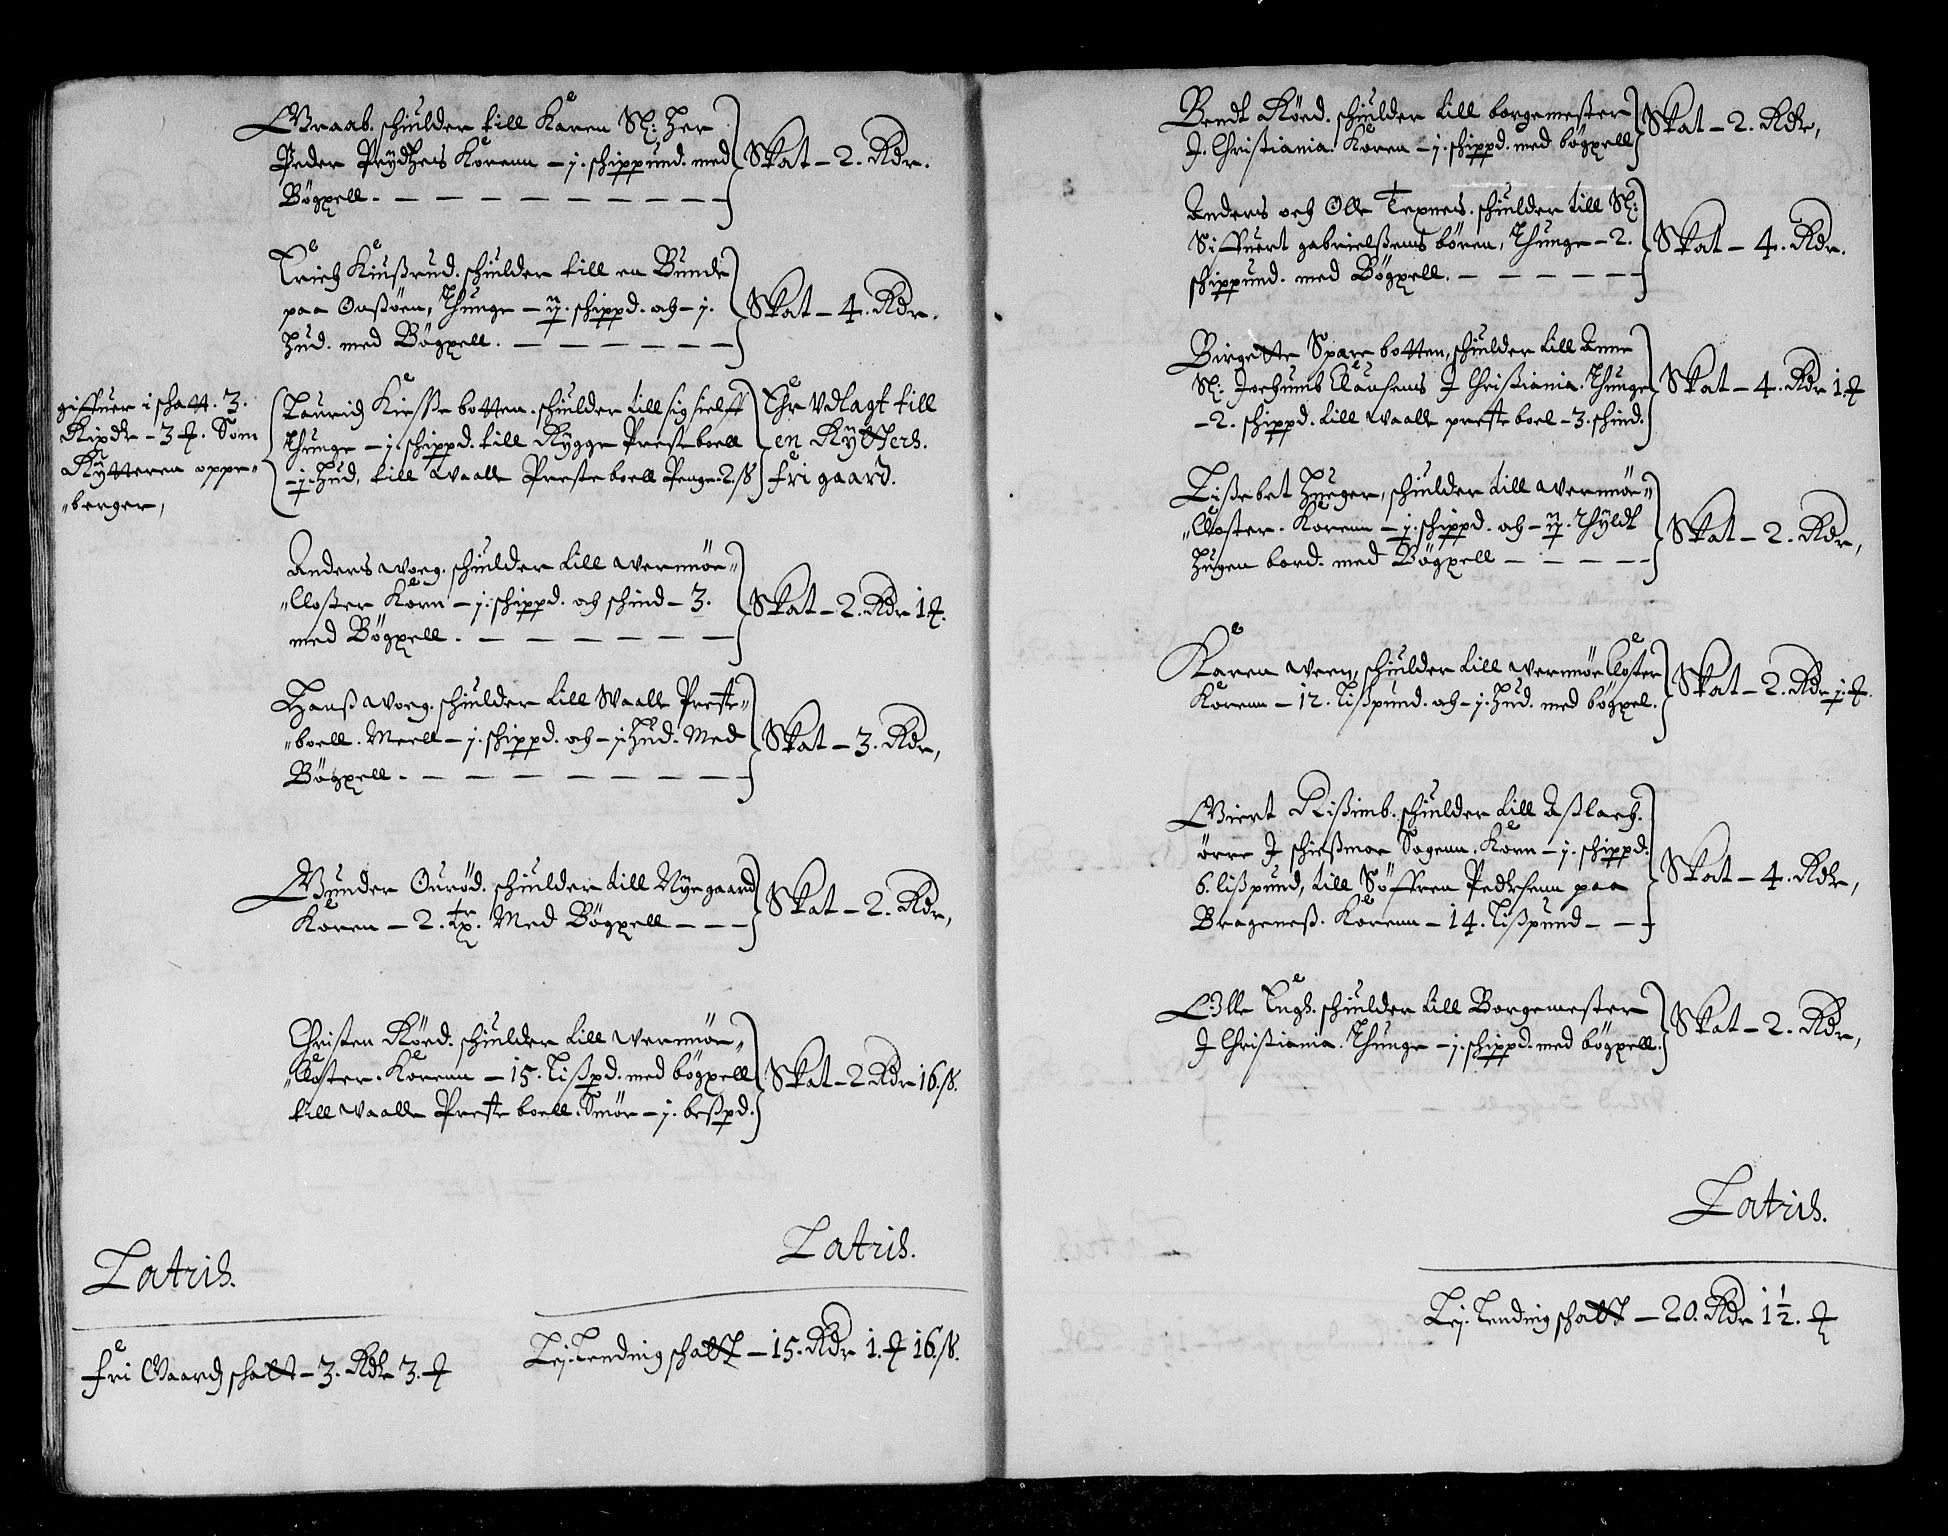 Graab. schiulder till Karen Sl: Her
Peder Prydtzes Korenn – j. schippund. med
Bögxell.
Skat – 2. Rdr.
Erich Kiusserud. schiulder till en Bunde
paa Onssöen, Thunge – ij. schippd. och – j.
Hud. med Bögxell.
Skat – 4. Rdr.
giffuer i schatt. 3.
Rixdr – 3 Som
Rytteren oppe-
-berger,
Lauridz Kiesse botten. schiulder till sig sielff
Thunge – j. schippd. till Rygge Preste boell
– j. Hud, till Waalle Preste boell Penge 2. ß
Ehr Vdlagt till
en Rytters.
fri gaard.
Anders Woeg. schiulder till Wernnör-
-Closter Korn – j. schippd. och schind – 3.
med Bögxell.
Skat – 2. Rdr 1.
Hanss Woeg. schiulder till Waalle Preste-
-boell. Meell – j. schippd. och – j. Hud. Med
Bögxell.
Skat – 3. Rdr,
Gunder Ouröd. schiulder till Nyegaard
Koren – 2. tr. Med Bögxell
Skat – 2. Rdr,
Christen Röed. schiulder till Wernnör-
-Closter. Korenn – 15. Lisspd. med bögxell
till Waalle Preste boell. Smör – j. besspd.
Skat – 2 Rdr 16. ß.
Latris.
Latris.
fri Gaardz schatt – 3. Rdr 3.
Lej. Lending schatt – 15. Rdr 1. 16. ß.
Bendt Röed. schiulder till borgemester
J. Christiania. Koren – j. schippd. med bögxell
Skat – 2. Rdr,
Anders och Olle Texnes. schiulder till Sl:
Siffuert gabrielssens bören, Thunge – 2.
schippund. med Bögxell.
Skat – 4. Rdr.
Birgette Spare botten, schiulder till Anne
Sl: Jochumb Clausens J Christiania. Thunge
– 2. schippd. till Waalle preste boel – 3. schind.
Skat – 4. Rdr 1.
Lissebet Hueger, schiulder till Wernnör-
-Closter. Korenn – j. schippd. och – ij. Thyldt
Hugen bord. med Bögxell
Skat – 2. Rdr,
Karen Wern, schiulder till Wernnör Closter
Korenn – 12. Lisspund. och – j. Hud. med bögxel.
Skat – 2. Rdr j.
Giert Rissimb. schiulder till Asslach.
örre J schiessmoe Sogenn. Korn – j. schippd:
6. lisspund, till Söffren Pedersenn paa
Brageness. Korenn – 14. Lisspund
Skat – 4. Rdr,
Olle Eng. schiulder till Borgemester
J Christiania. Thunge – j. schippd. med bögxell.
Skat – 2. Rdr,
Latris.
Lej. Lending schatt – 20. Rdr 1½.